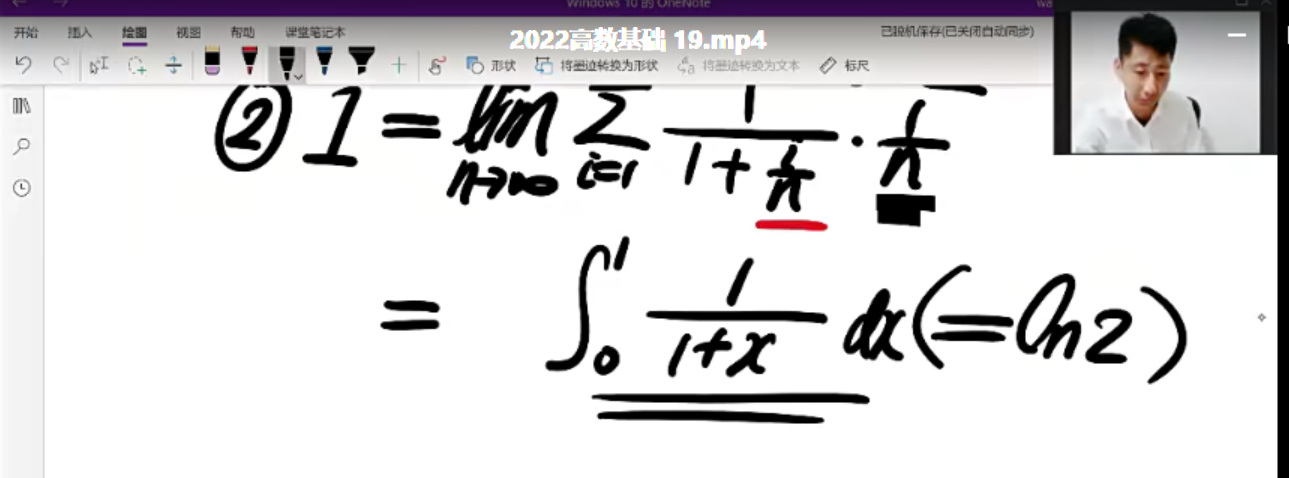 Windows 10 的 OneNote
开始 插入 绘图 视图 帮助 课堂笔记本
2022高数基础 19.mp4
已脱机保存(已关闭自动同步)
形状 将墨迹转换为形状 将墨迹转换为文本 标尺
② I = lim n→∞ ∑ i=1 1/(1+i/n) · 1/n
= ∫₀¹ 1/(1+x) dx (= ln2)